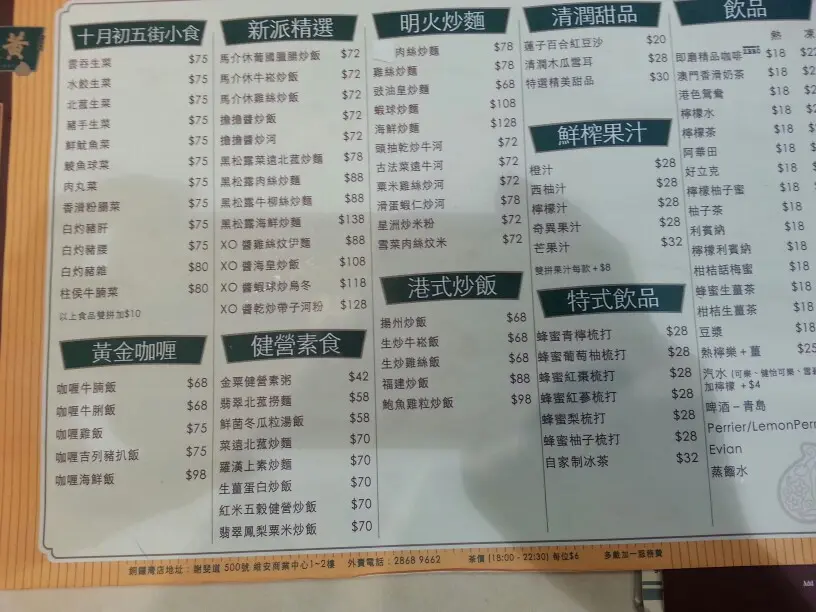 黃
十月初五街小食
雲吞生菜 $75
水餃生菜 $75
北菰生菜 $75
豬手生菜 $75
鮮魷魚菜 $75
鯪魚球菜 $75
肉丸菜 $75
香滑粉腸菜 $75
白灼豬肝 $75
白灼豬腰 $75
白灼豬雜 $80
柱侯牛腩菜 $80
以上食品雙拼加$10
黃金咖喱
咖喱牛腩飯 $68
咖喱牛脷飯 $68
咖喱雞飯 $75
咖喱吉列豬扒飯 $75
咖喱海鮮飯 $98
新派精選
馬介休葡國臘腸炒飯 $72
馬介休牛崧炒飯 $72
馬介休雞絲炒飯 $72
擔擔醬炒飯 $72
擔擔醬炒河 $72
黑松露菜遠北菰炒麵 $78
黑松露肉絲炒麵 $88
黑松露牛柳絲炒麵 $88
黑松露海鮮炒麵 $138
XO 醬雞絲炆伊麵 $88
XO 醬海皇炒飯 $108
XO 醬蝦球炒烏冬 $118
XO 醬乾炒帶子河粉 $128
健營素食
金粟健營素粥 $42
翡翠北菰撈麵 $58
鮮菌冬瓜粒湯飯 $58
菜遠北菰炒麵 $70
羅漢上素炒麵 $70
生薑蛋白炒飯 $70
紅米五穀健營炒飯 $70
翡翠鳳梨粟米炒飯 $70
明火炒麵
肉絲炒麵 $78
雞絲炒麵 $78
豉油皇炒麵 $68
蝦球炒麵 $108
海鮮炒麵 $128
頭抽乾炒牛河 $72
古法菜遠牛河 $72
粟米雞絲炒河 $72
滑蛋蝦仁炒河 $78
星洲炒米粉 $72
雪菜肉絲炆米 $72
港式炒飯
揚州炒飯 $68
生炒牛崧飯 $68
生炒雞絲飯 $68
福建炒飯 $88
鮑魚雞粒炒飯 $98
清潤甜品
蓮子百合紅豆沙 $20
清潤木瓜雪耳 $28
特選精美甜品 $30
鮮榨果汁
橙汁 $28
西柚汁 $28
檸檬汁 $28
奇異果汁 $28
芒果汁 $32
雙拼果汁每款 + $8
特式飲品
蜂蜜青檸梳打 $28
蜂蜜葡萄柚梳打 $28
蜂蜜紅棗梳打 $28
蜂蜜紅蔘梳打 $28
蜂蜜梨梳打 $28
蜂蜜柚子梳打 $28
自家制冰茶 $32
飲品
熱 凍
即磨精品咖啡 $18 $22
澳門香滑奶茶 $18
港色鴛鴦 $18
檸檬水 $18
檸檬茶 $18
阿華田 $18
好立克 $18
檸檬柚子蜜 $18
柚子茶 $18
利賓納 $18
檸檬利賓納 $18
柑桔話梅蜜 $18
蜂蜜生薑茶 $18
柑桔生薑茶 $18
豆漿 $18
熱檸樂 + 薑 $25
汽水 (可樂、健怡可樂、
加檸檬 + $4
啤酒 – 青島
Perrier/LemonPerr
Evian
蒸餾水
銅鑼灣店地址：謝斐道 500號 維安商業中心1~2樓 外賣電話：2868 9662 茶價 (18:00 - 22:30) 每位$6 多歡加一服務費